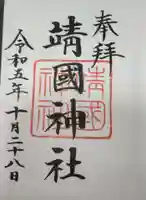 奉拝
靖國神社
令和五年十月二十八日